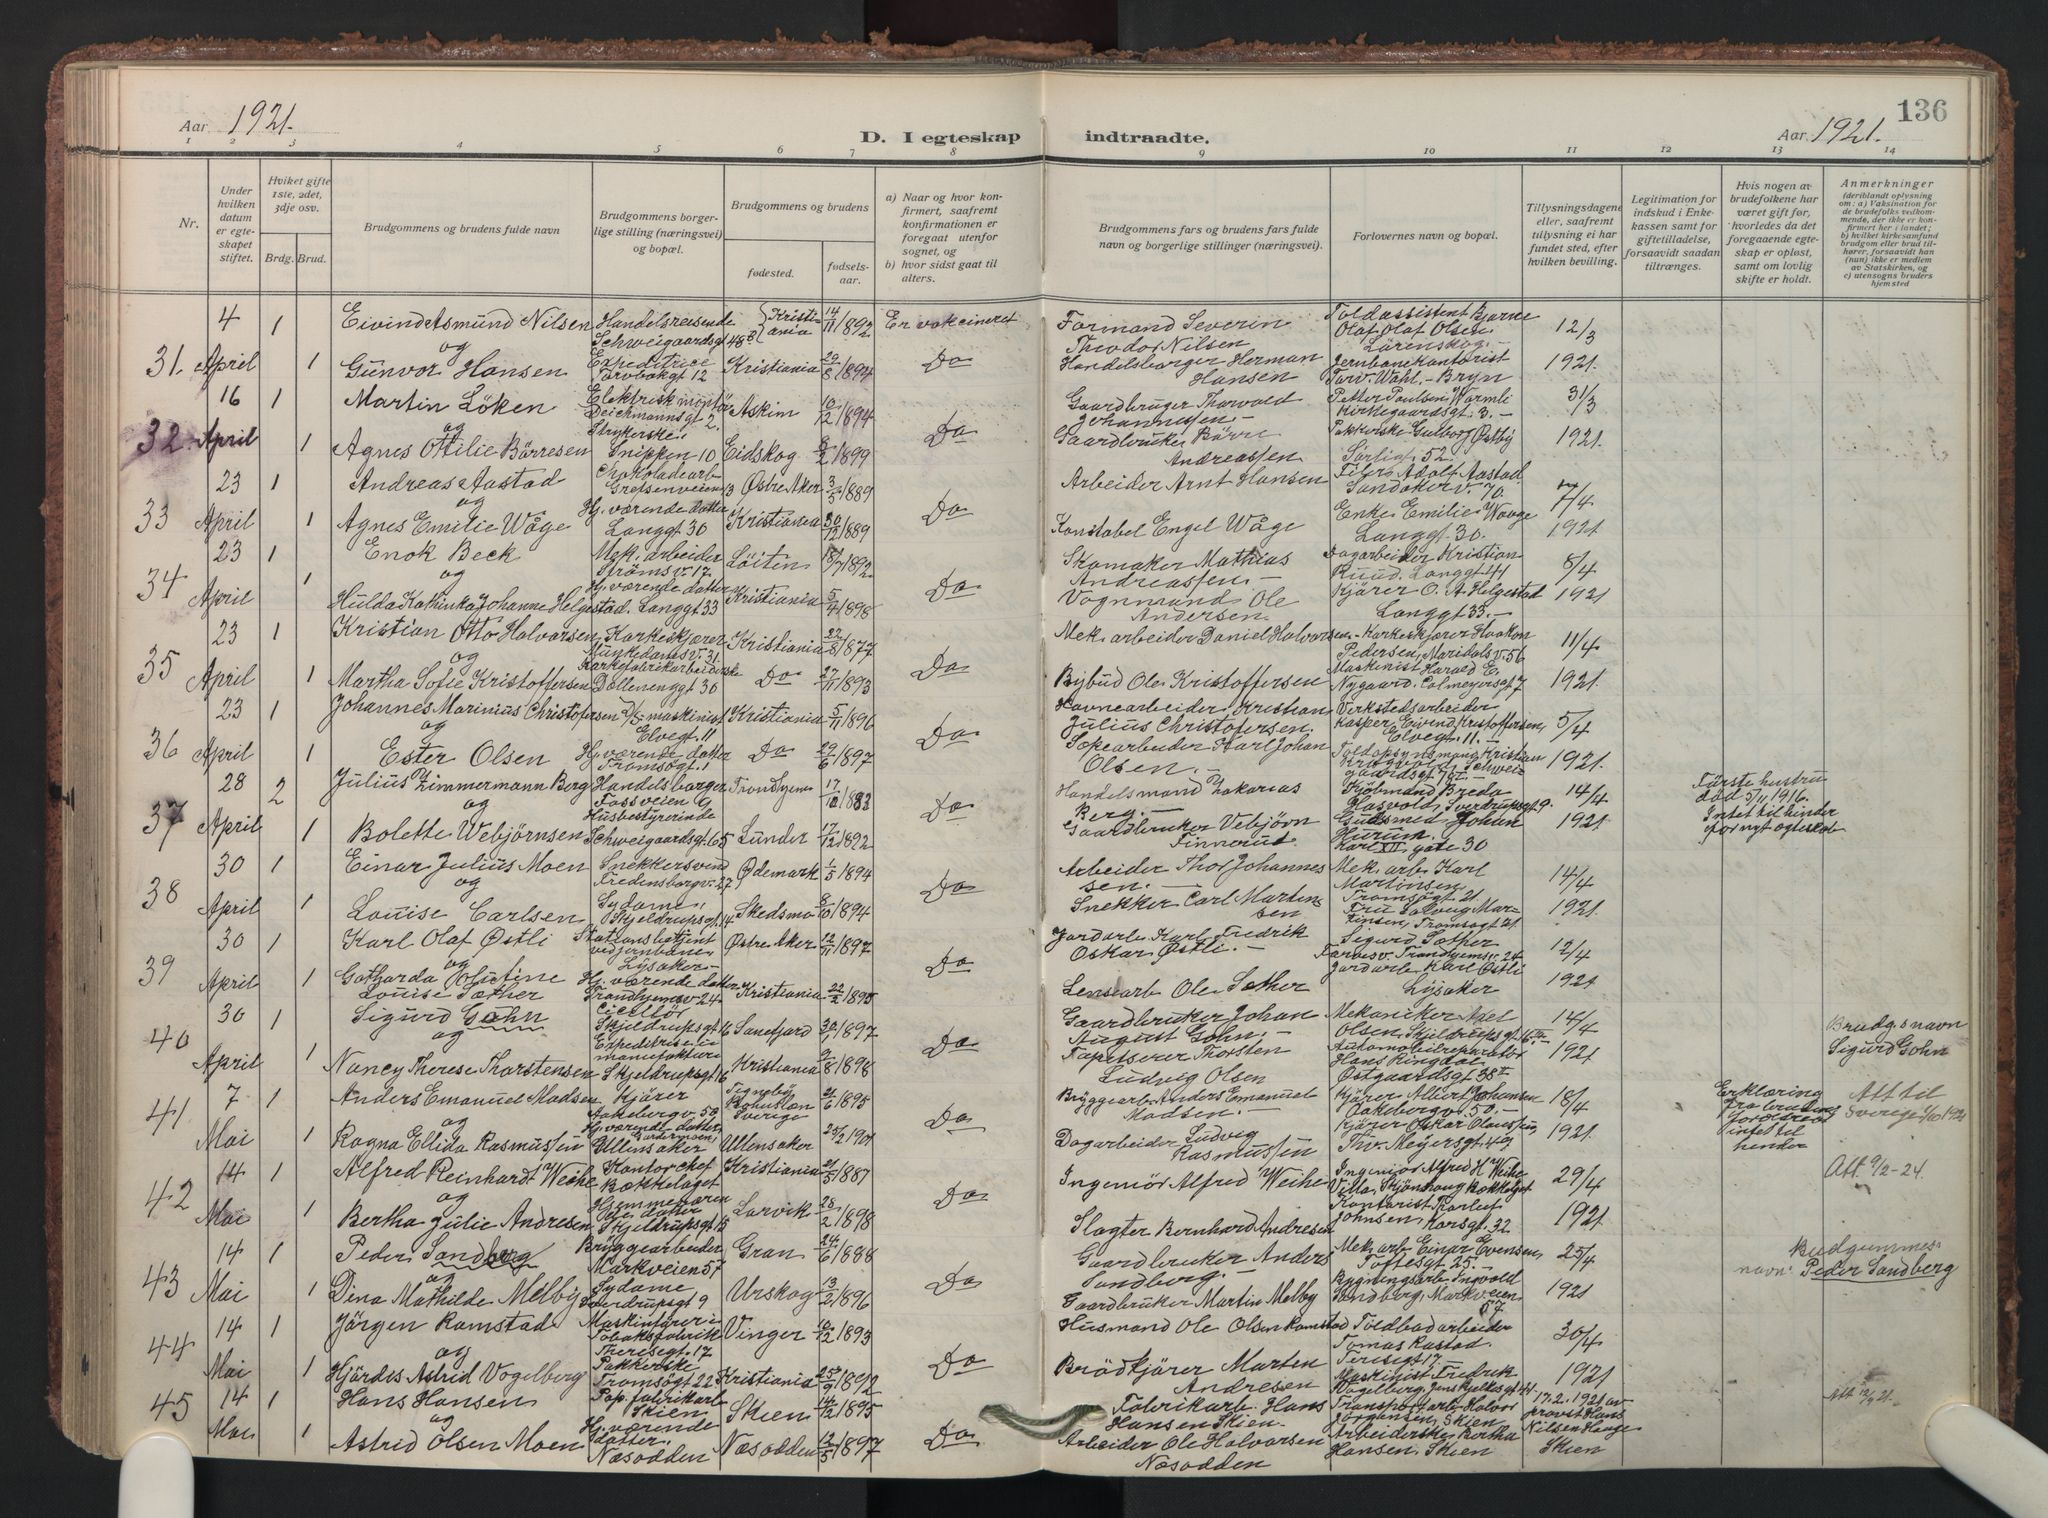 Aar 1921.
D. I egteskap indtraadte.
136
Aar 1921.
1 2 3 4 5 6 7 8 9 10 11 12 13 14
Nr.
Under hvilken datum er egteskapet stiftet.
Hviket gifte 1ste, 2det, 3dje osv.
Brdg. Brud.
Brudgommens og brudens fulde navn
Brudgommens borgerlige stilling (næringsvei) og bopæl.
Brudgommens og brudens
fødested.
fødselsaar.
a) Naar og hvor konfirmert, saafremt konfirmationen er foregaat utenfor sognet, og
b) hvor sidst gaat til alters.
Brudgommens fars og brudens fars fulde navn og borgerlige stillinger (næringsvei).
Forlovernes navn og bopæl.
Tillysningsdagene eller, saafremt tillysning ei har fundet sted, efter hvilken bevilling.
Legitimation for indskud i Enkekassen samt for giftetilladelse, forsaavidt saadan tiltrænges.
Hvis nogen av brudefolkene har været gift før, hvorledes da det foregaaende egteskap er opløst, samt om lovlig skifte er holdt.
Anmerkninger (deriblandt oplysning om: a) Vaksination for de brudefolks vedkommende, der ikke er konfirmert her i landet; b) hvilket kirkesamfund brudgom eller brud tilhører, forsaavidt han (hun) ikke er medlem av Statskirken, og c) utensogns bruders hjemsted
31. 4 April 1 Eivind Asmund Nilsen Handelsreisende Schweigaardsgt 48 B Kristiania 14/11 1892 Er vakcineret Formand Severin Theodor Nilsen Toldassistent Bjarne Olaf Olsen Lörenskog. 12/3
og
1 Gunvor Hansen Expeditrice Torvbakgt 12 Kristiania 29/8 1894 Do Handelsborger Herman Hansen Jernbanekontorist Torv. Wahl. - Bryn 1921.
32. 16 April 1 Martin Löken Elektrisk montör Deichmannsgt 2. Askim 10/12 1894 Gaardbruger Thorvald Johannessen. Petter Poulsen Wormli Kirkegaardsgt. 3. 31/3
og
1 Agnes Ottilie Börresen Strykerske Snippen 10 Eidskog 1899 Do Gaardbruker Börre Andreassen Pakkerske Gulborg Östby Sorligt. 52. 1921.
33 23 April 1 Andreas Aastad Chokoladearb Grefsenveien 13 Østre Aker 3/5 1889 Arbeider Arnt Hansen Filer Adolf Aastad Sandakerv. 70. 7/4
og
1 Agnes Emilie Wåge Hj. værende datter Langgt 30 Kristiania 30/12 1889 Do Konstabel Engel Wåge Enke Emilie Waage Langgt 30. 1921.
34 23 April 1 Enok Beck Mek. arbeider Strömsv. 17 Löiten 18/7 1892 Skomaker Mathias Andreassen. Dagarbeider Kristian Ruud. Langgt 41 8/4
og
1 Hulda Kathinka Johanne Helgestad. Hj. værende datter Langgt 33 Kristiania 5/4 1898 Do Vognmand Ole Andersen. Kjörer O. A. Helgestad Langgt 33. 1921
35 23 April 1 Kristian Otto Halvorsen Korkeskjærer Munkedamsv. 31 Kristiania 22/8 1877 Mek. arbeider Daniel Halvorsen. Korkeskjærer Haakon Pedersen, Maridalsv. 56 11/4
og
1 Martha Sofie Kristoffersen Korkefabrikarbeiderske Dællenenggt 30 Do 27/11 1893 Do Bybud Ole Kristoffersen Maskinist Harald E. Nygaard. Calmeyersgt 7 1921.
36 23 April 1 Johannes Marinius Christofersen D/S maskinist Elvegt. 11 Kristiania 5/11 1896 Havnearbeider Kristian Julius Christofersen. Verkstedsarbeider Kasper Eivind Kristoffersen, Elvegt. 11. 5/4
og
1 Ester Olsen Hj. værende datter Tromsögt. 1 Do 29/6 1897 Do Sopearbeider Karl Johan Olsen. Toldopsynsmand Kristian Schweigaardsgt 1921.
37 28 April 2 Julius Zimmermann Berg Handelsborger Fossveien 9 Trondhjem 17/10 1882 Handelsmand Zakarias Berg. Kjöbmand Breda Hasvold, Sverdrupsgt 9. 14/4 Förste hustru död 5/11 1916. Intet til hinder for nyt egteskab
og
1 Bolette Webjörnsen Husbestyrerinde Schweigaardsgt. 65 Lunder 17/12 1892 Do Gaardbruker Vebjörn Finnerud Gulsmed Johan Hurum. Karl XII gate 30 1921.
38 30 April 1 Einar Julius Moen Snekkersvend Fredensborgv. 27 Ødemark 1/5 1894 Arbeider Thor Johannessen. Mek. arb. Karl Martinsen. Tromsögt 21. 14/4
og
1 Louise Carlsen Sydame, Skjeldrupsgt. 14 Skedsmo 8/10 1894 Do Snekker Carl Martensen Fru Solveig Martinsen, Tromsögt 21. 1921.
39 30 April 1 Karl Olaf Østli Stationsbetjent ved jernbanen Lysaker Østre Aker 12/11 1897 Jordarb. Karl Fredrik Oskar Østli. Sigurd Sæther Trondhjemsv. 24 12/4
og
1 Gotharda Olufine Louise Sæther Hj. værende datter Trondhjemsv 24 Kristiania 22/2 1895 Do Lensearb. Ole Sæther Jordarb. Karl Østli Lysaker 1921
40 30 April 1 Sigurd Gohn Cicelör Skjeldrupsgt 16 Sanefjord 30/1 1897 Gaardbruker Johan August Gohn. Mekaniker Axel Olsen, Skjeldrupsgt. 16 14/4 Brudg.s navn Sigurd Gohn
og
1 Nancy Therese Thorstensen Expeditrise i manufaktur Skjeldrupsgt 16 Kristiania 9/8 1898 Do Tapetserer Thorsten Ludvig Olsen Automobilreparatör Hans Ringdal Østgaardsgt 38 1921
41 7 Mai 1 Anders Emanuel Madsen Kjörer Aakebergv. 50 Tognebÿ Bohuslen Sverige 21/6 1895 Bryggearb. Anders Emanuel Madsen. Kjörer Albert Johansen Aakebergv. 50. 18/4 Erklæring fra brudens foreldre intet til hender Att til Sverige 1/10 1921
og
1 Ragna Ellida Rasmussen Hj. værende datter, Gardermoen Ullensaker Ullensaker 25/2 1901 Do Dagarbeider Ludvig Rasmussen Kjörer Oskar Olaussen Th. Meyersgt. 49 1921.
42 14 Mai 1 Alfred Reinhardt Weihe Kontorchef Bækkelaget Kristiania 21/5 1887 Ingeniör Alfred Weihe Ingeniör Alfred H. Weihe Villa Skjönhaug Bækkelaget 29/4 Att 9/2-24.
og
1 Bertha Julie Andresen Hjemmeværende datter Skjeldrupsgt 15 Larvik 28/2 1898 Do Slagter Bernhard Andresen Kontorist Karlest Johnsen, Korsgt. 32 1921.
43 14 Mai 1 Peder Sandberg Bryggearbeider Markveien 57 Gran 24/6 1888 Gaardbruker Anders Sandberg. Mek. arb. Einar Evensen, Toftesgt 25. 25/4 Budgummes navn: Peder Sandberg
og
1 Dina Mathilde Melby Sydame Sverdrupsgt 9 Urskog 13/2 1896 Do Gaardbruker Martin Melby Bygningsarb. Ingvald Sandberg, Markveien 57. 1921
44 14 Mai 1 Jörgen Ramstad Maskinförer i Tobaksfabrik Theresegt. 17 Vinger 10/12 1893 Husmand Ole Olsen Ramstad Toldbodarbeider Tomas Rastad. Teresegt 17. 30/4
og
1 Hjördes Astrid Vogelberg Pakkerske Tromsögt 22 Kristiania 25/9 1892 Do Brödkjörer Marten Andresen Maskinist Fredrik Vogelberg, Jens Bjelkesgt 41. 1921
45 14 Mai 1 Hans Hansen Pap. fabrikarb. Skien Skien 14/12 1895 Fabrikarb. Hans Hansen Skien. Transportarb. Halvor Jörgensen, Skien 17.2.1921 av provst Hans Nilsen Hauge Skien Att 12/9 21.
og
1 Astrid Olsen Moen Hj. værende datter. Næsodden Næsodden 12/5 1897 Do Arbeider Ole Halvorsen Næsodden Arbeiderske Bertha Hansen, Skien